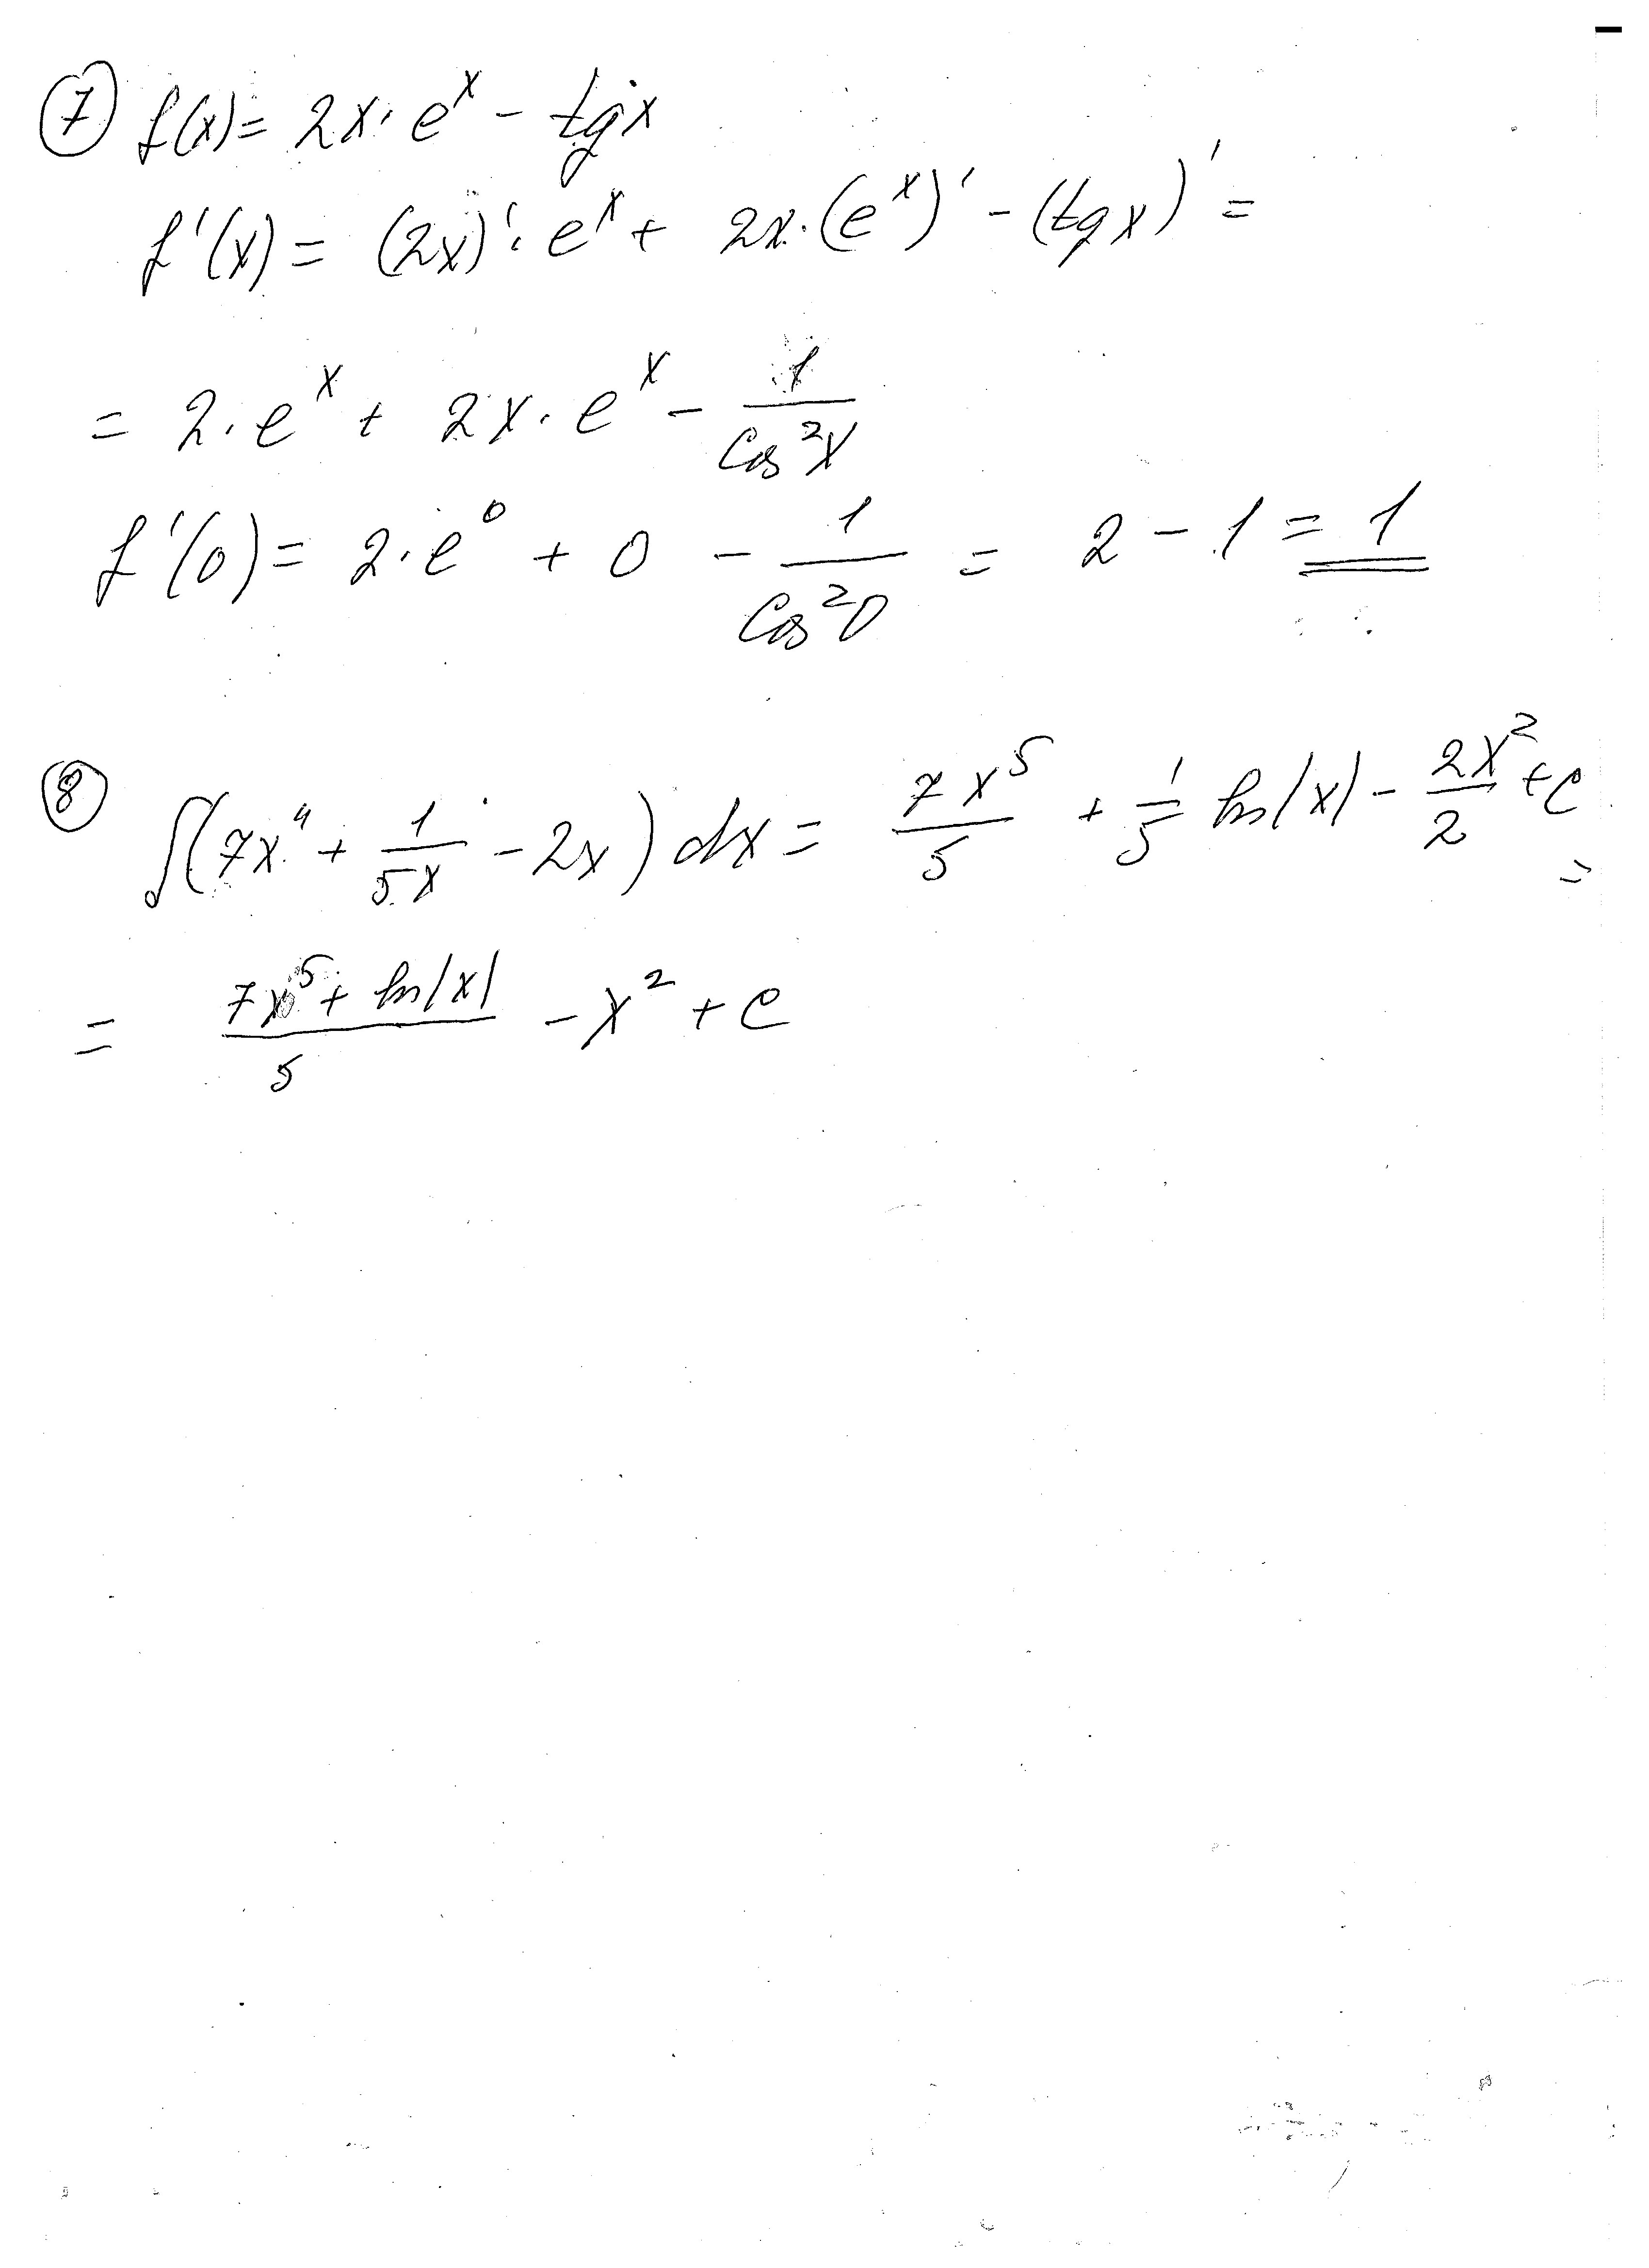 ⑦ f(x) = 2x · e^x - tg x
f'(x) = (2x)' · e^x + 2x · (e^x)' - (tg x)' =
= 2 · e^x + 2x · e^x - 1/cos²x
f'(0) = 2 · e^0 + 0 - 1/cos²0 = 2 - 1 = 1
⑧ ∫(7x⁴ + 1/5x - 2x) dx = 7x⁵/5 + 1/5 ln|x| - 2x²/2 + c =
= (7x⁵ + ln|x|)/5 - x² + c